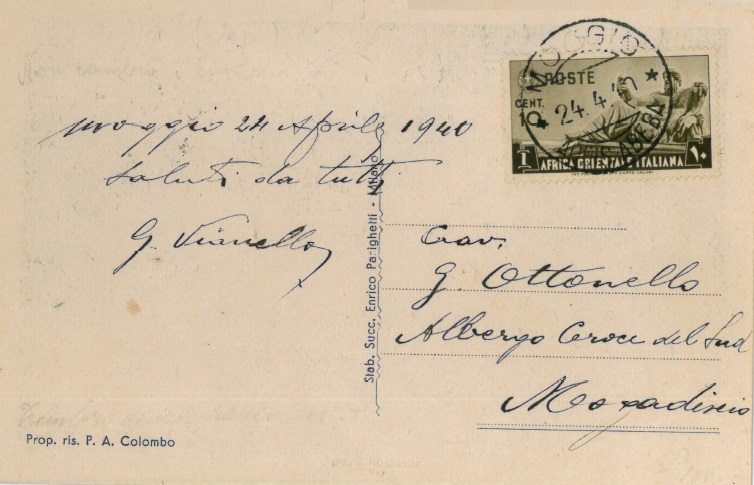 moggio 24 Aprile 1940
saluti da tutti
G. Vianello
MOGGIO
24.4.40
ADDIS ABEBA
POSTE
CENT.
10
AFRICA ORIENTALE ITALIANA
١٠
Cav.
G. Ottonello
Albergo Croce del Sud
Mogadiscio
Stab. Succ. Enrico Parighetti - Milano
Prop. ris. P. A. Colombo